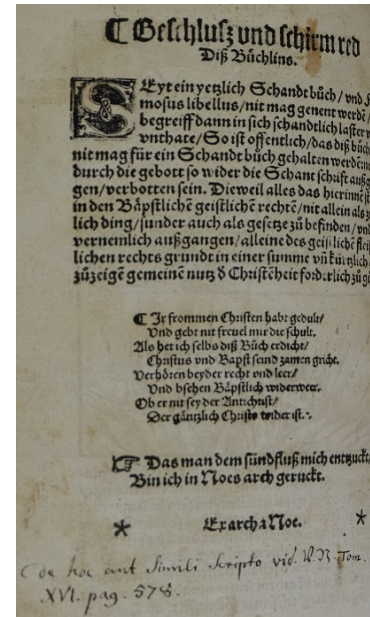 ☾ Beschlusz vnd schirm red
Diß Büchlins.
SEyt ein yetzlich Schandtbůch / vnd
mosus libellus / nit mag genent werdē /
begreiff dann in sich schandtlich laster
vnthate / So ist offentlich / das diß bůch
nit mag für ein Schandtbůch gehalten werdē:
durch die gebott so wider die Schant schrift außg
gen / verbotten sein. Dieweil alles das hierinnē
in den Bäpstlichē geistlichē rechtē / nit allein als
lich ding / sunder auch als gesetze zů befinden / vnd
vernemlich außgangen / alleine des geistlichē
lichen rechts grundt in einer summe vn̄ kürtzlich
zůzeigē gemeinē nutz d̄ Christēheit forderlich zů
☾ Ir frommen Christen habt gedult /
Vnd gebt nit freuel mir die schult.
Als het ich selbs diß Bůch erdicht /
Christus vnd Bapst seind zamen gricht.
Verhören beyder recht vnd leer /
Vnd bsehen Bäpstlich widerweer.
Ob er nit sey der Antichrist /
Der gäntzlich Christo wider ist.
☞ Das man dem sündfluß mich entzuckt,
Bin ich in Noes arch geruckt.
* Ex archa Noe. *
de hoc aut simili scripto vid. U.N. Tom.
XVI. pag. 578.